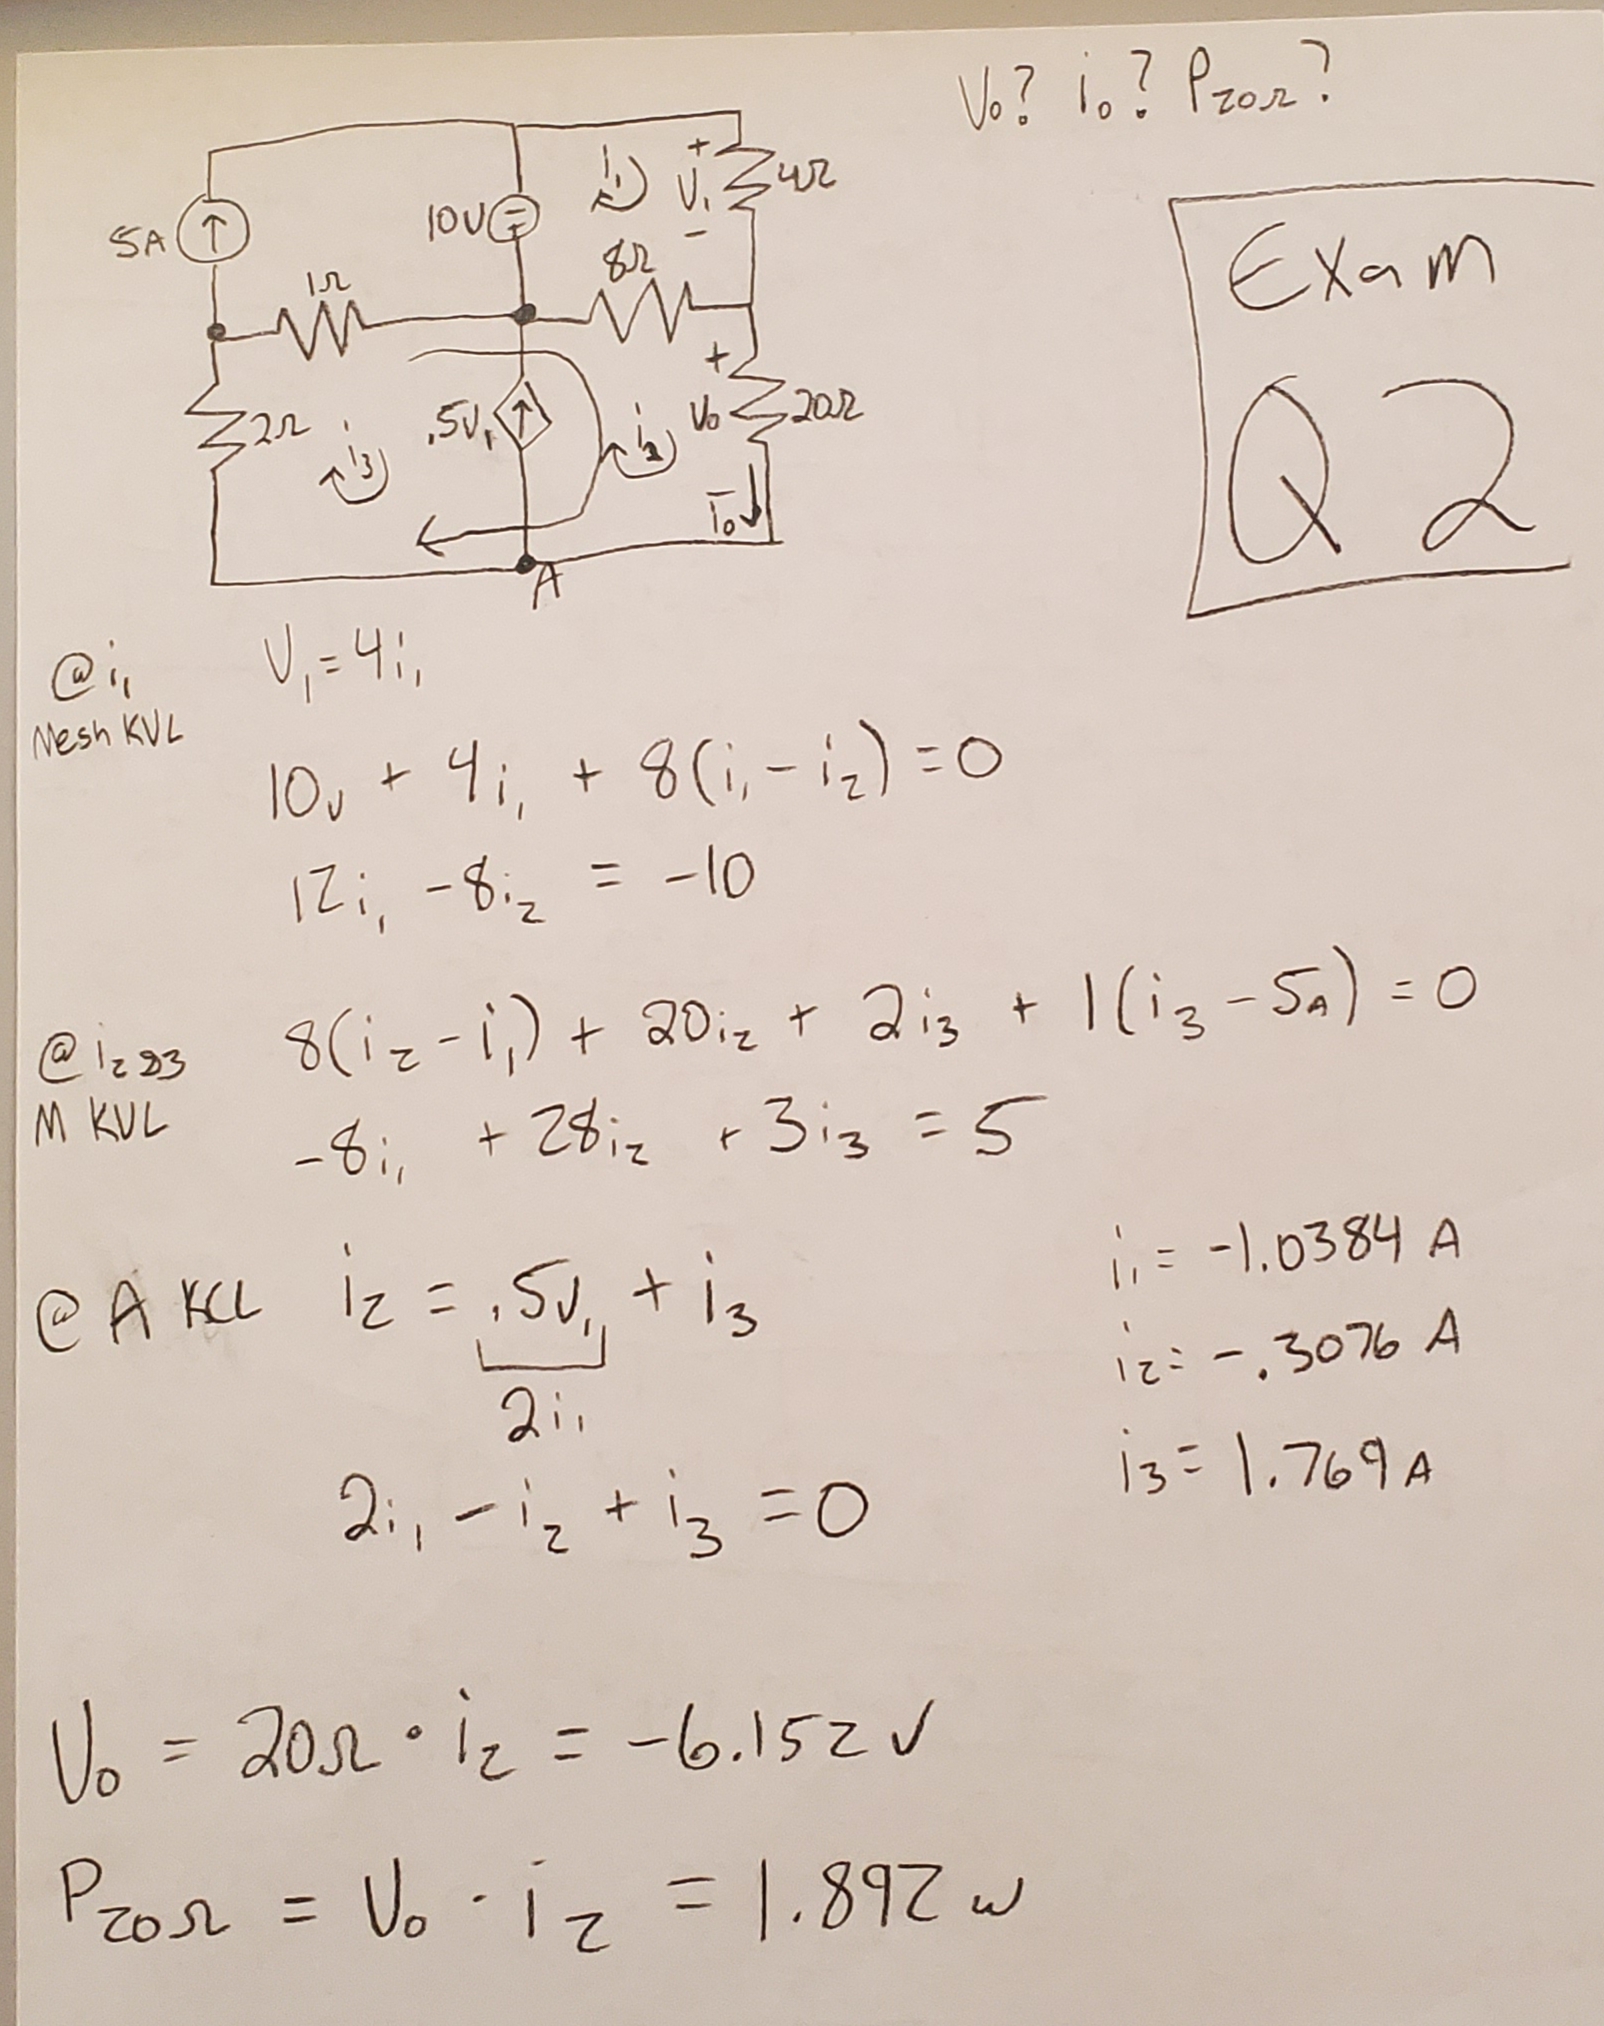 V₀? i₀? P₂₀Ω?
Exam
Q2
5A
10V
i₁
+
V₁
-
4Ω
1Ω
8Ω
2Ω
i₃
.5V₁
i₂
+
V₀
20Ω
I₀
A
@i₁ V₁ = 4i₁
Mesh KVL
10v + 4i₁ + 8(i₁ - i₂) = 0
12i₁ - 8i₂ = -10
@i₂&3 8(i₂ - i₁) + 20i₂ + 2i₃ + 1(i₃ - 5A) = 0
M KVL
-8i₁ + 28i₂ + 3i₃ = 5
@ A KCL i₂ = .5V₁ + i₃
2i₁
2i₁ - i₂ + i₃ = 0
i₁ = -1.0384 A
i₂ = -.3076 A
i₃ = 1.769 A
V₀ = 20Ω · i₂ = -6.152 V
P₂₀Ω = V₀ · i₂ = 1.892 w